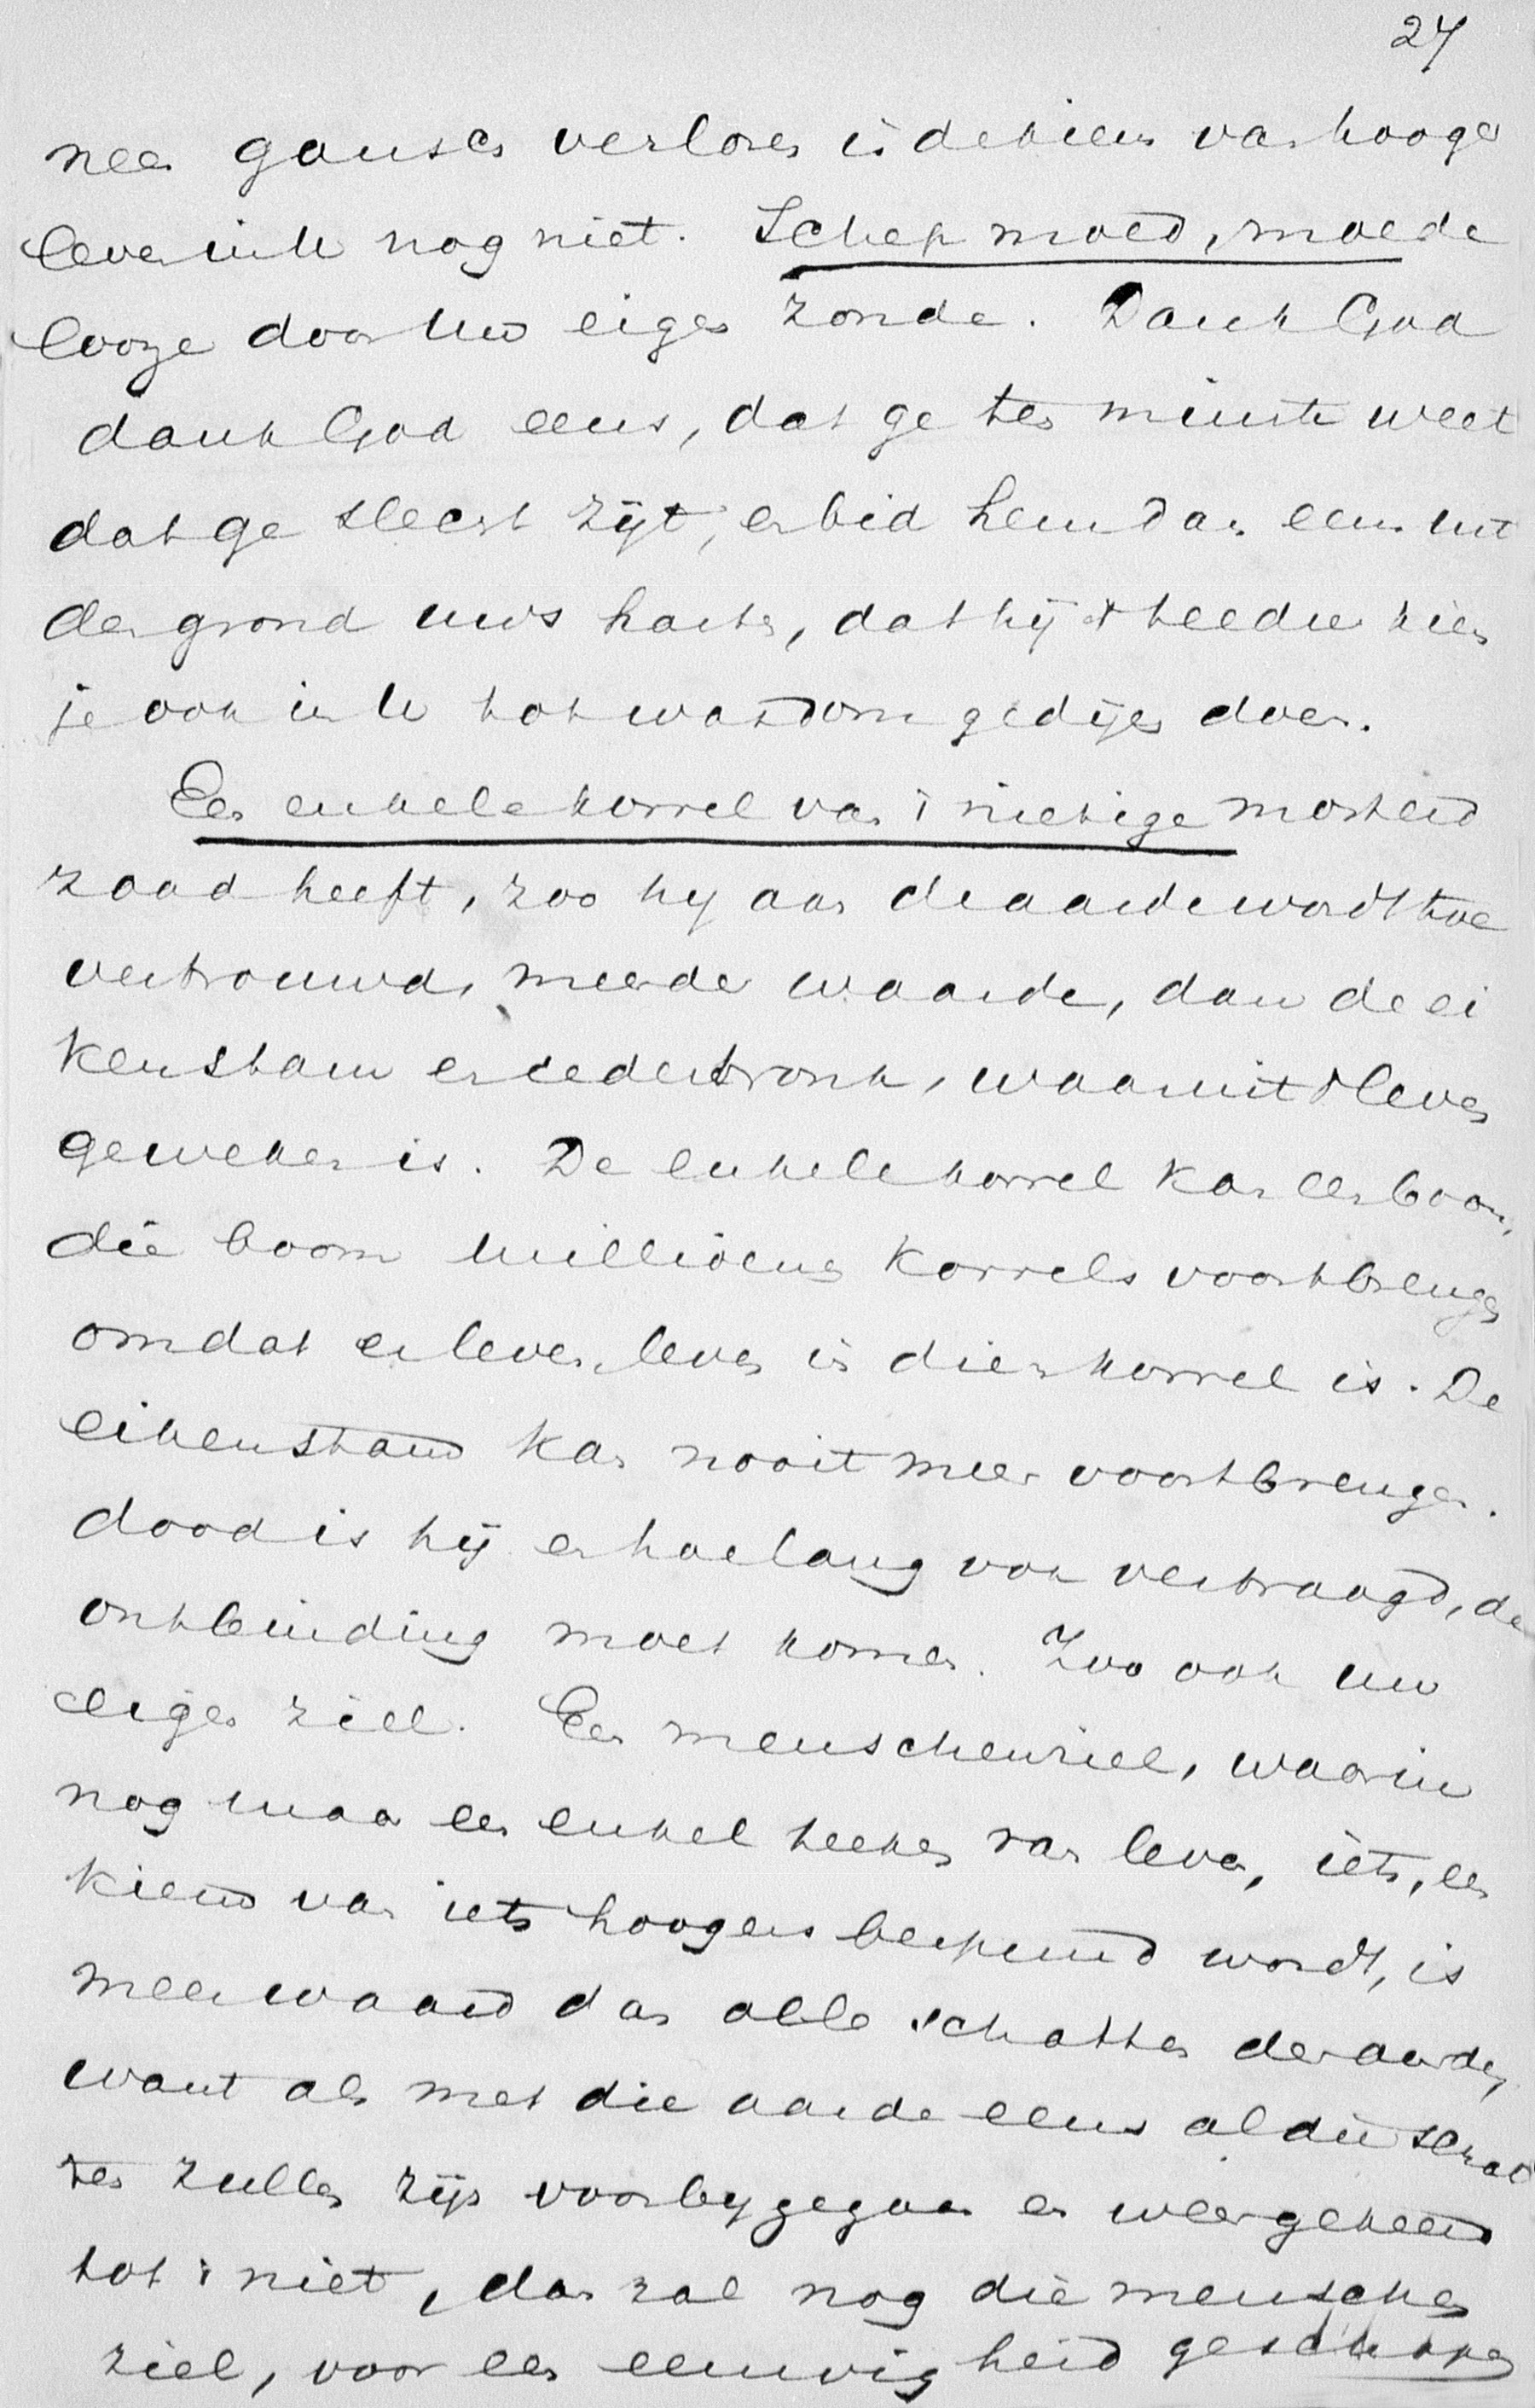 27
neen gansch verloren is de kiem van hooger
leven in U nog niet. Schep moed, moede
looze door Uw eigen zonde. Dank God
dank God eens, dat ge ten minste weet
dat ge slecht zijt, en bid hem dan eens uit
den grond uws harten, dat hij 't teedere kiem
je ook in U tot wasdom gedijen doen.
Een enkele korrel van 't nietige mosterd
zaad heeft, zoo hy aan de aarde wordt toe
vertrouwd, meerder waarde, dan de ei
kenstam en cedertronk, waaruit 't leven
geweken is. De enkele korrel kan een boom,
die boom millioenen korrels voortbrengen
omdat er leven, leven in dien korrel is. De
eikenstam kan nooit meer voortbrengen.
dood is hij en hoelang ook vertraagd, de
ontbinding moet komen. Zoo ook uw
eigen ziel. Een menschenziel, waarin
nog maar een enkel teeken van leven, iets, een
kiem van iets hoogers bespeurd wordt, is
meer waard dan alle schatten der aarde,
want als met die aarde eens al die schat
ten zullen zijn voorbygegaan en weergekeerd
tot 't niet, dan zal nog die menschen
ziel, voor een eeuwigheid geschapen